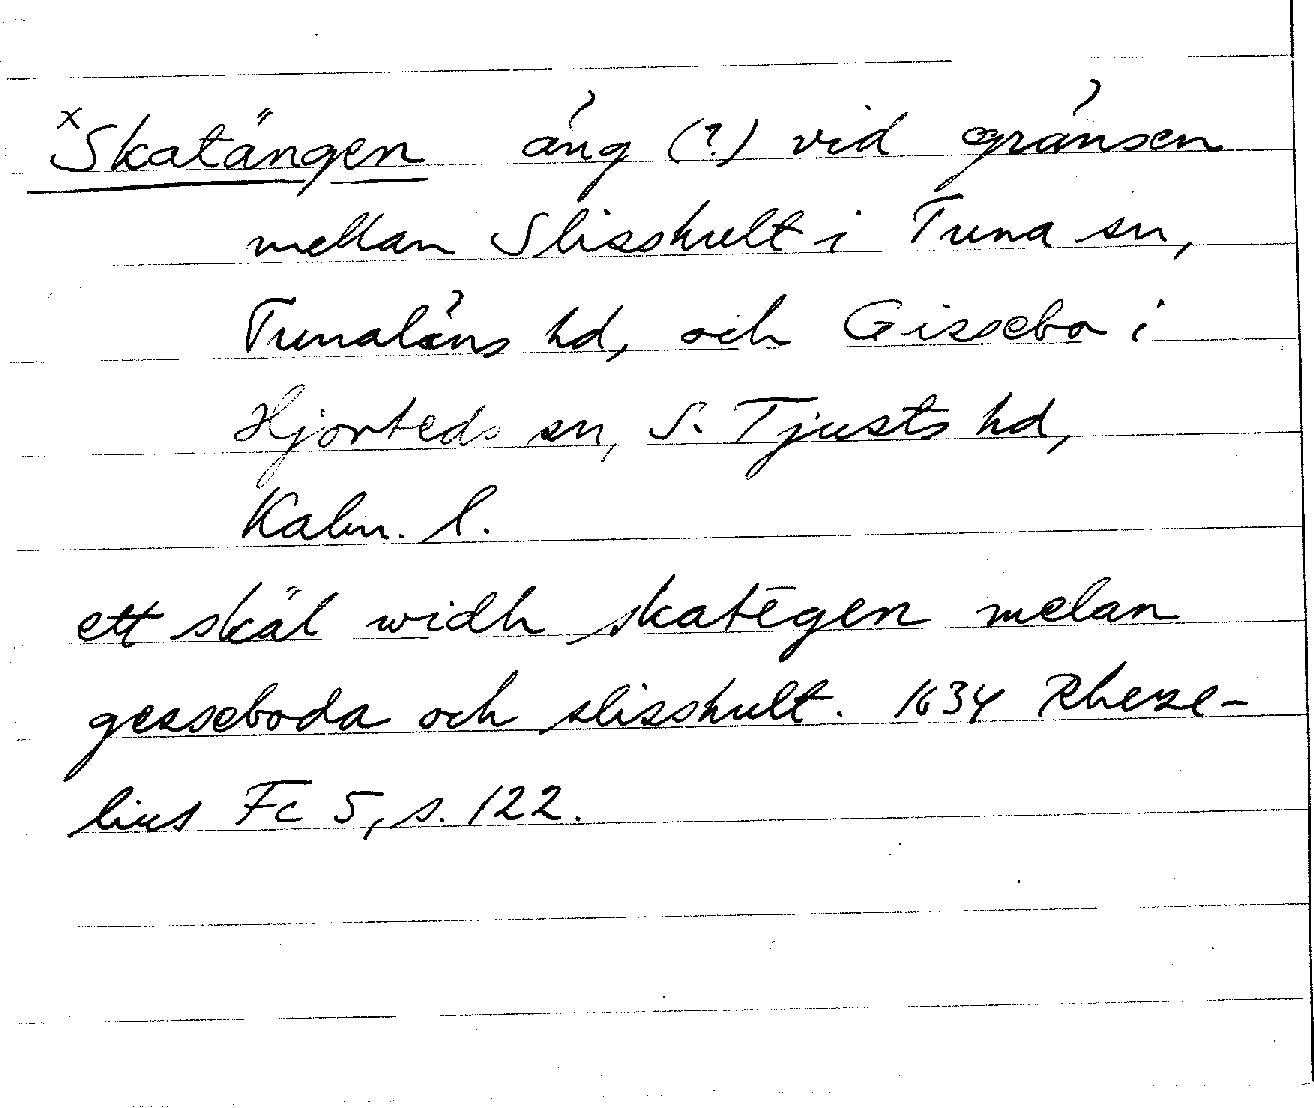 xSkatängen äng (?) vid gränsen
mellan Slisshult i Tuna sn,
Tunaläns hd, och Gissebo i
Hjorteds sn, S. Tjusts hd,
Kalm. l.
ett skäl widh skatēgen melan
gesseboda och slisshult. 1634 Rheze-
lius Fc 5, s. 122.